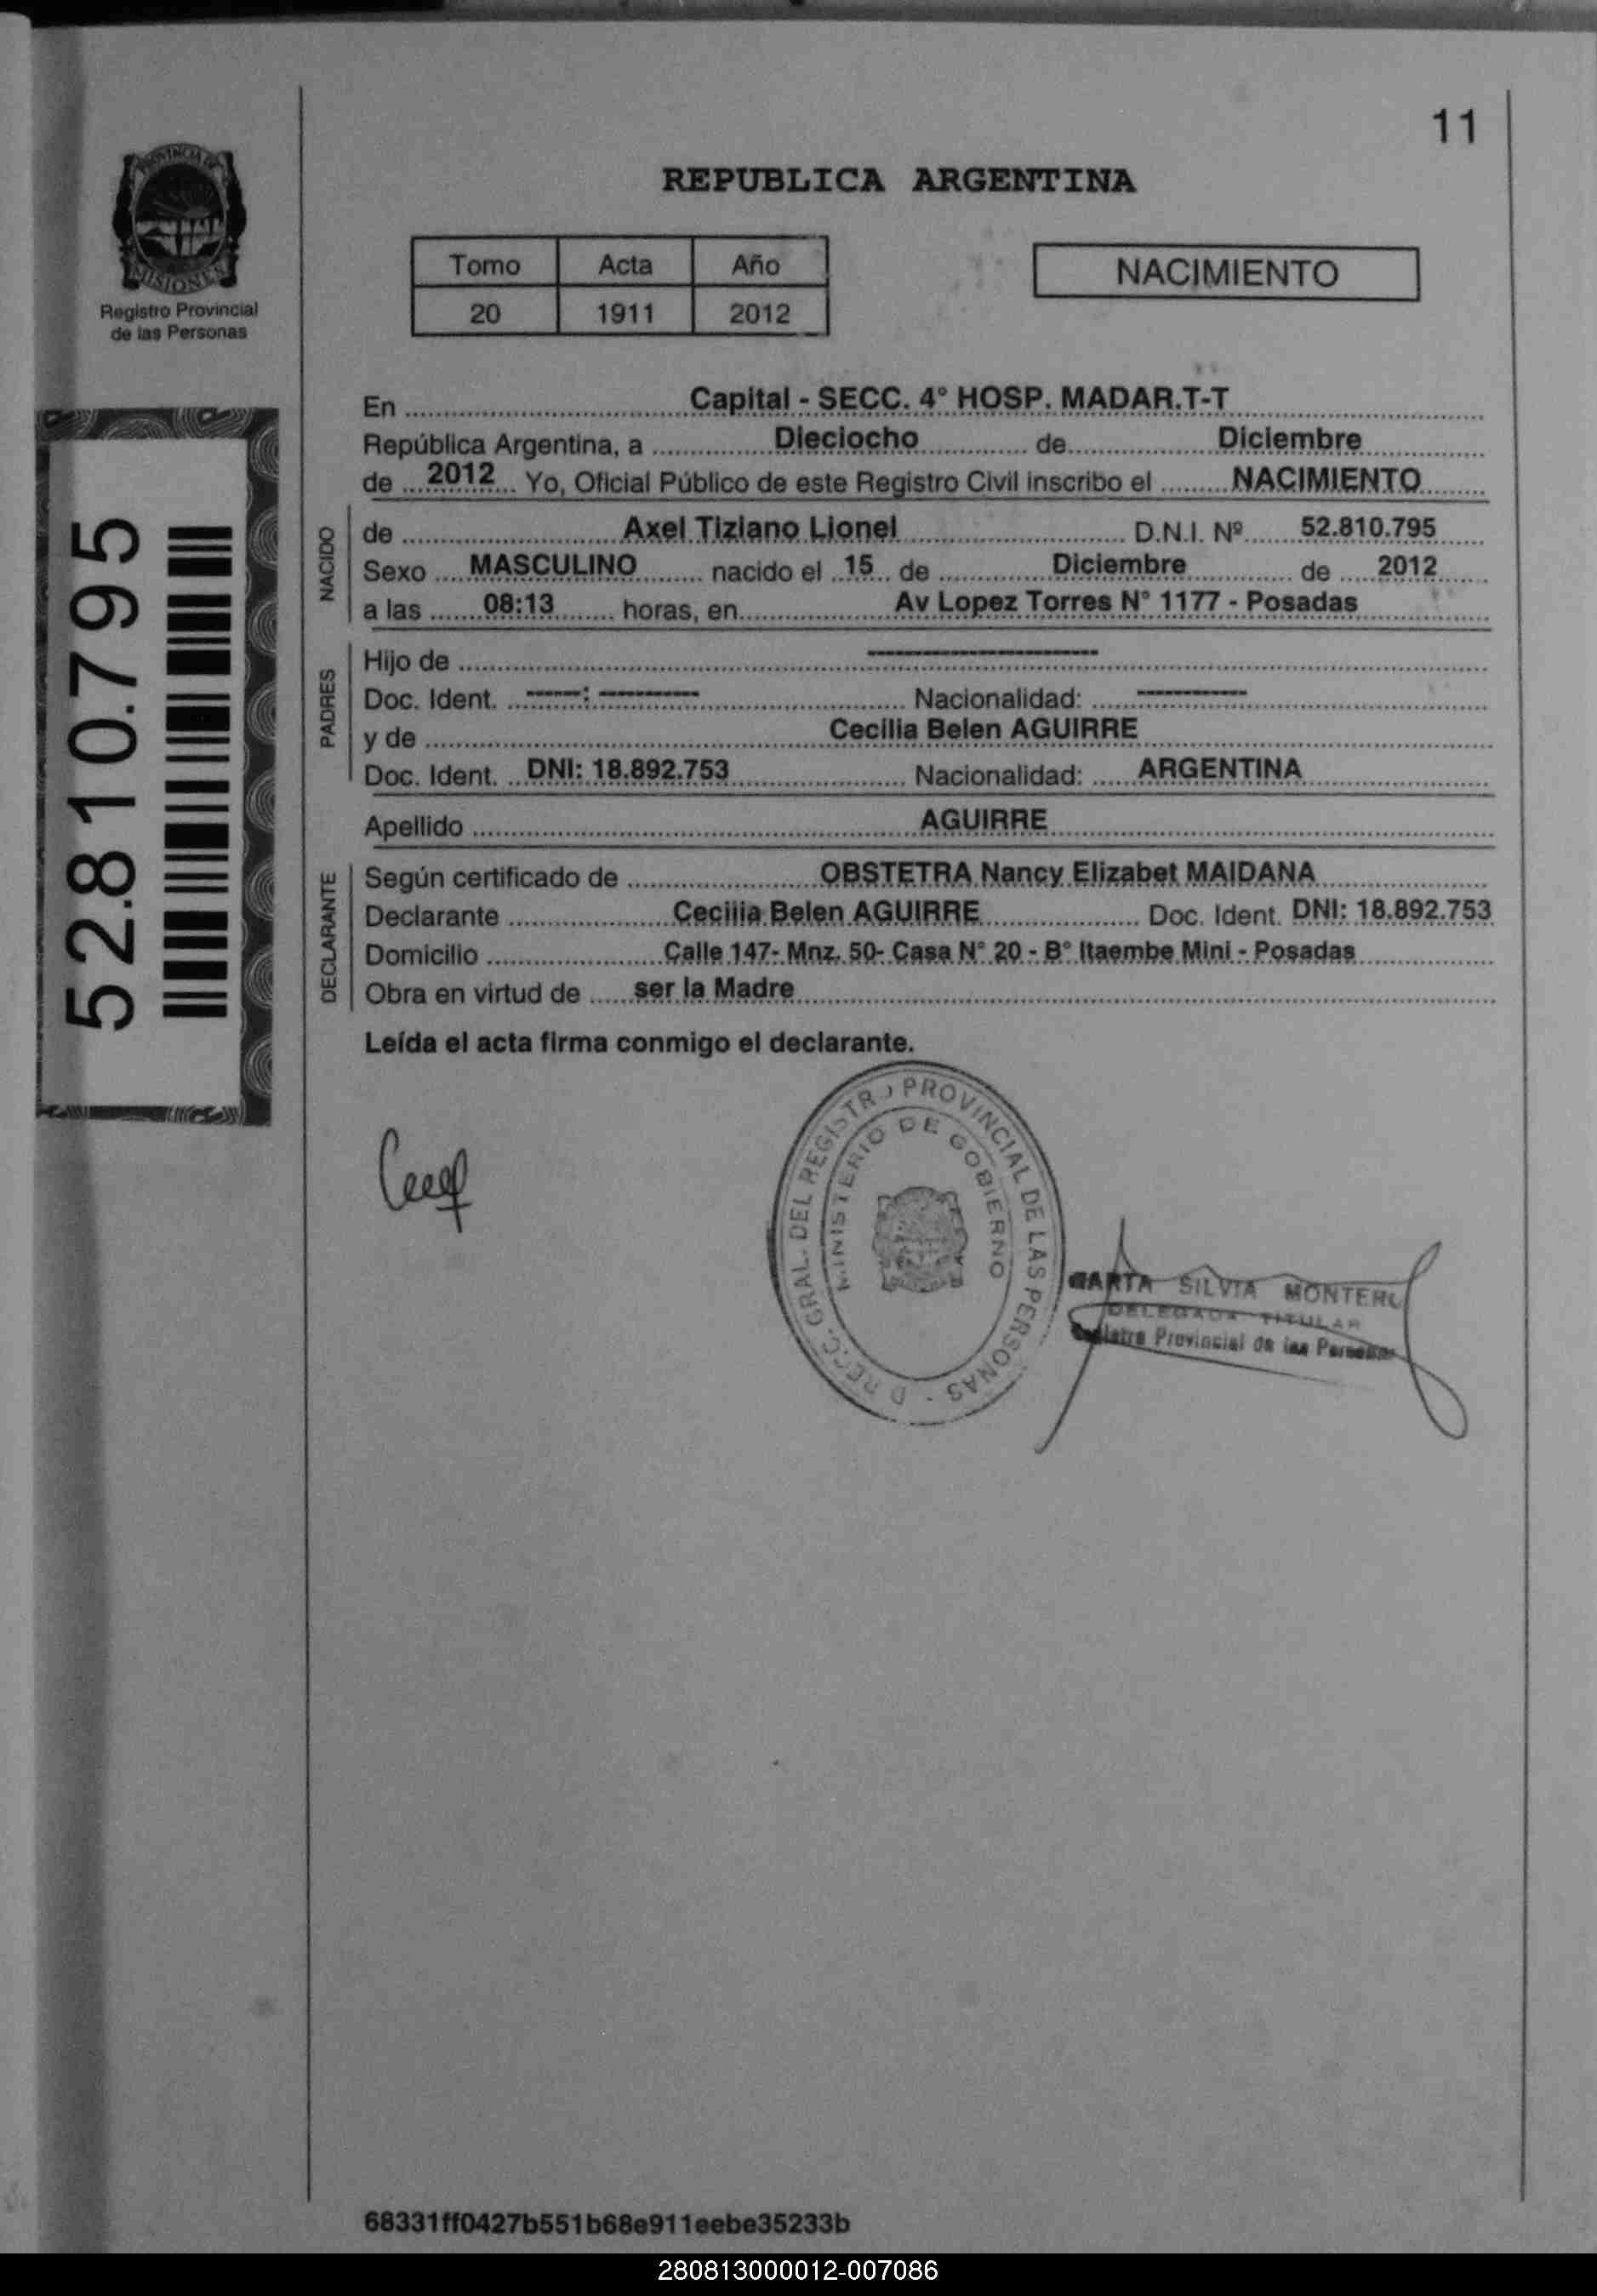 11
PROVINCIA DE
MISIONES
Registro Provincial
de las Personas
REPUBLICA ARGENTINA
Tomo Acta Año
20 1911 2012
NACIMIENTO
52.810.795
En Capital - SECC. 4° HOSP. MADAR.T-T
República Argentina, a Dieciocho de Diciembre
de 2012 Yo, Oficial Público de este Registro Civil inscribo el NACIMIENTO
NACIDO
de Axel Tiziano Lionel D.N.I. Nº 52.810.795
Sexo MASCULINO nacido el 15 de Diciembre de 2012
a las 08:13 horas, en Av Lopez Torres N° 1177 - Posadas
PADRES
Hijo de ----------
Doc. Ident. -----: ---------- Nacionalidad: ----------
y de Cecilia Belen AGUIRRE
Doc. Ident. DNI: 18.892.753 Nacionalidad: ARGENTINA
Apellido AGUIRRE
DECLARANTE
Según certificado de OBSTETRA Nancy Elizabet MAIDANA
Declarante Cecilia Belen AGUIRRE Doc. Ident. DNI: 18.892.753
Domicilio Calle 147- Mnz. 50- Casa N° 20 - B° Itaembe Mini - Posadas
Obra en virtud de ser la Madre
Leída el acta firma conmigo el declarante.
GRAL. DEL REGISTRO PROVINCIAL DE LAS PERSONAS
MINISTERIO DE GOBIERNO
MARTA SILVIA MONTERO
DELEGADA TITULAR
Registro Provincial de las Personas
68331ff0427b551b68e911eebe35233b
280813000012-007086